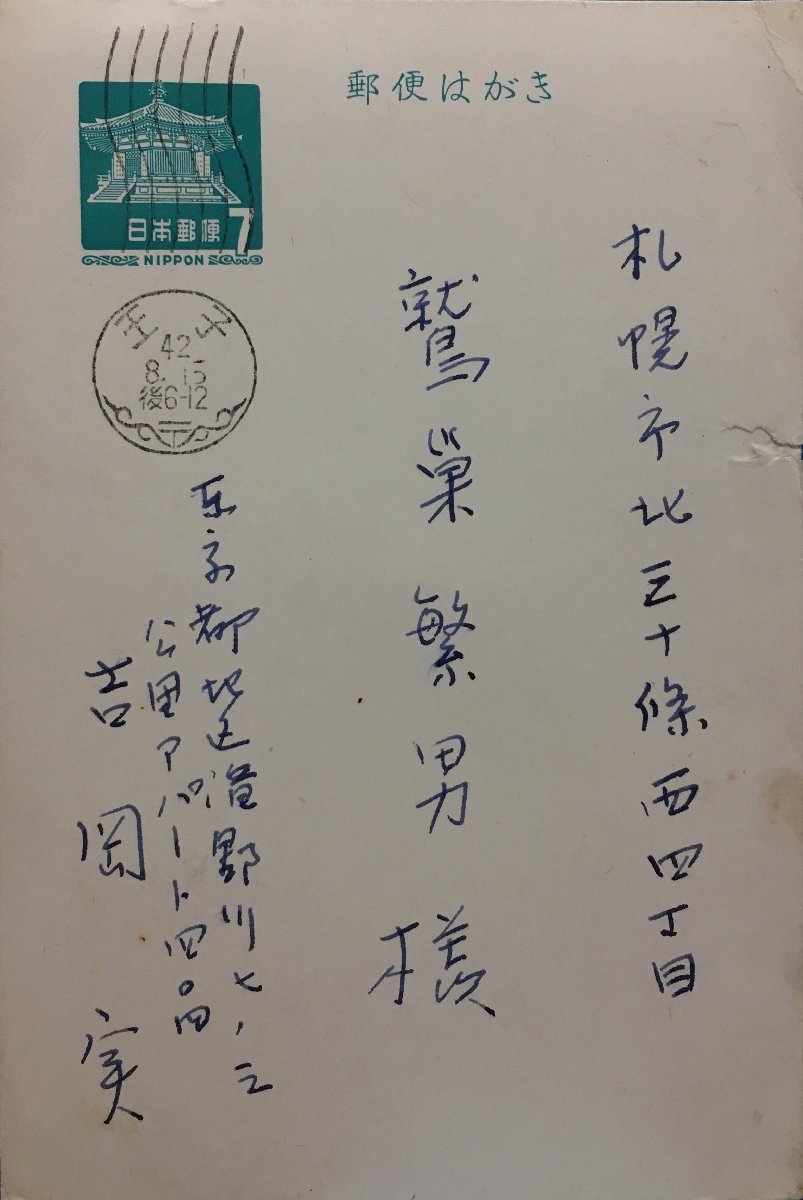 郵便はがき
日本郵便 7
NIPPON
王子
42
8.15
後6-12
札幌市北三十條西四丁目
鷲巣繁男様
東京都北区滝野川七ノ三
公団アパート四〇四
吉岡実